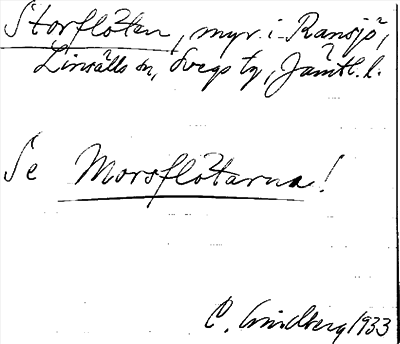 Storflötan, myr i Ransjö,
Linsälls sn, Svegs tg, Jämtl. l.
Se Morsflötarna!
C. Lindberg 1933